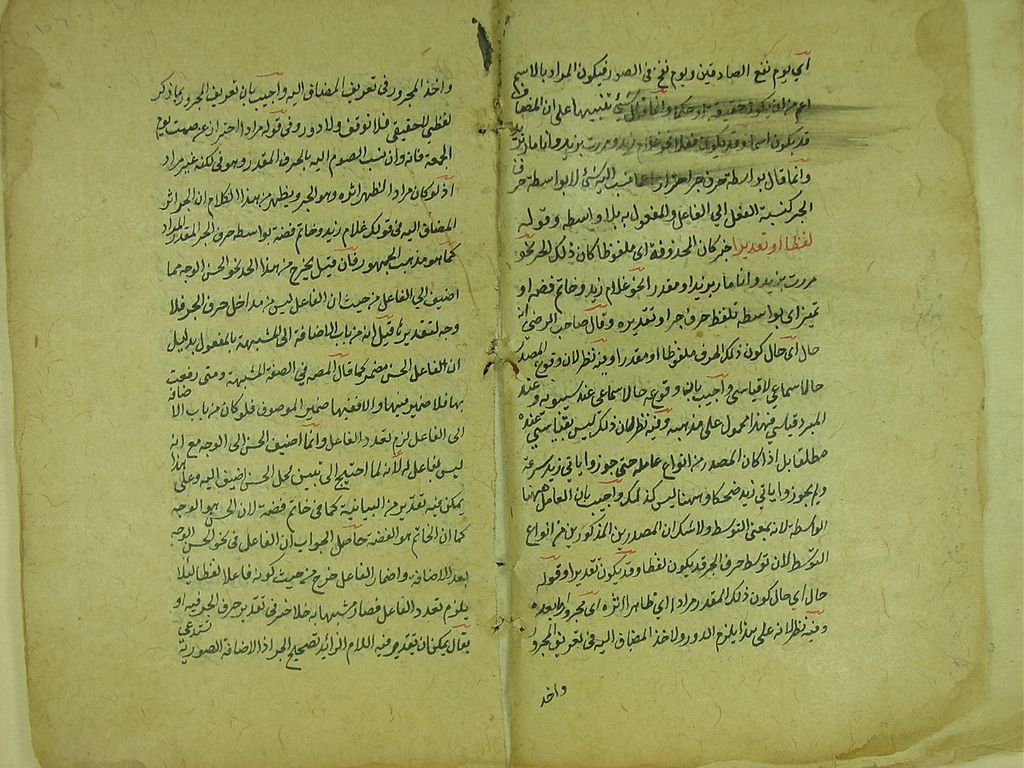 أي يوم نفع الصادقين ويوم نفخ في الصور فيكون المراد بالاسم
اعم من ان يكون حقيقة او حكما وانما قال كل شئ تنبيها على ان المضاف
قد يكون اسما وقد يكون فعلا نحو غلام زيد ومررت بزيد وانا مار بزيد
وانما قال بواسطة حرف جر احترازا عما نسب اليه شئ لا بواسطة حرف
الجر كنسبة الفعل الى الفاعل والمفعول به بلا واسطه وقوله
لفظا او تقديرا خبر كان المحذوفة اى ملفوظا كان ذلك الحر نحو
مررت بزيد وانا مار بزيد او مقدرا نحو غلام زيد وخاتم فضه او
تميز اى بواسطه تلفظ حرف جر او تقديره وقال صاحب المرضى انه
حال أى حال كون ذلك الحرف ملفوظا او مقدرا وفيه نظر لان وقوع المصدر
حالا سماعي لا قياسي وأجيب بان وقوعه حالا سماعي عند سيبويه وعند
المبرد قياسي فهذا محمول على مذهبه وفيه نظر لان ذلك ليس بقياسي عنده
مطلقا بل اذا كان المصدر من انواع عامله حتى جوزوا ياتي زيد سرعة
ولم يجوزوا ياتي زيد ضحكا وههنا ليس كذلك وأجيب بان العامل ههنا
الواسطة لانه بمعنى التوسط ولا شك ان المصدرين المذكورين من انواع
التوسط لان توسط حرف الجر قد يكون لفظا وقد يكون تقديرا وقوله
حال اى حال كون ذلك المقدر مرادا اى ظاهرا اثره أى مجرورا ما بعده
وفيه نظر لانه على هذا يلزم الدور ولاخذ المضاف اليه في تعريف المجرور
واخذ
واخذ المجرور في تعريف المضاف اليه وأجيب بان تعريف المجرور بما ذكر
لفظي لا حقيقي فلا توقف ولا دور وفي قوله مرادا احتراز عن صمت يوم
الجمعة فانه وان نسب الصوم اليه بالحرف المقدر وهو في لكنه غير مراد
اذ لو كان مرادا لظهر اثره وهو الجر ويظهر من هذا الكلام ان الجر اثر
المضاف اليه في قولك غلام زيد وخاتم فضة بواسطه حرف الجر المقدر المراد
كما هو مذهب الجمهور فان قيل يخرج من هذا الحد نحو الحسن الوجه مما
اضيف الى الفاعل من حيث ان الفاعل ليس من مداخل حرف الجر فلا
وجه لتقديره قيل انه من باب الاضافة الى المشبهة بالمفعول بدليل
ان الفاعل الحسن مضمر كما قال المصه في الصفة المشبهة ومتى رفعت
بها فلا ضمير فيها والا ففيها ضمير الموصوف فلو كان من باب الاضافة
الى الفاعل لزم تعدد الفاعل وانما اضيف الحسن الى الوجه مع انه
ليس بفاعل له لانه لما احتيج الى تبيين محل الحسن اضيف اليه وعلى هذا
يمكن فيه تقدير من البيانية كما في خاتم فضة لان الحسن هو الوجه
كما ان الخاتم هو الفضه حاصل الجواب ان الفاعل في نحو الحسن الوجه
بعد الاضافه واضمار الفاعل خرج من حيث كونه فاعلا لفظا لئلا
يلزم تعدد الفاعل فصار مشبها به فلا حرج في تقدير حرف الجر فيه او
يقال يمكن ان يقدر فيه اللام الزائد لتصحيح الجر اذ الاضافة الصورية تستدعى